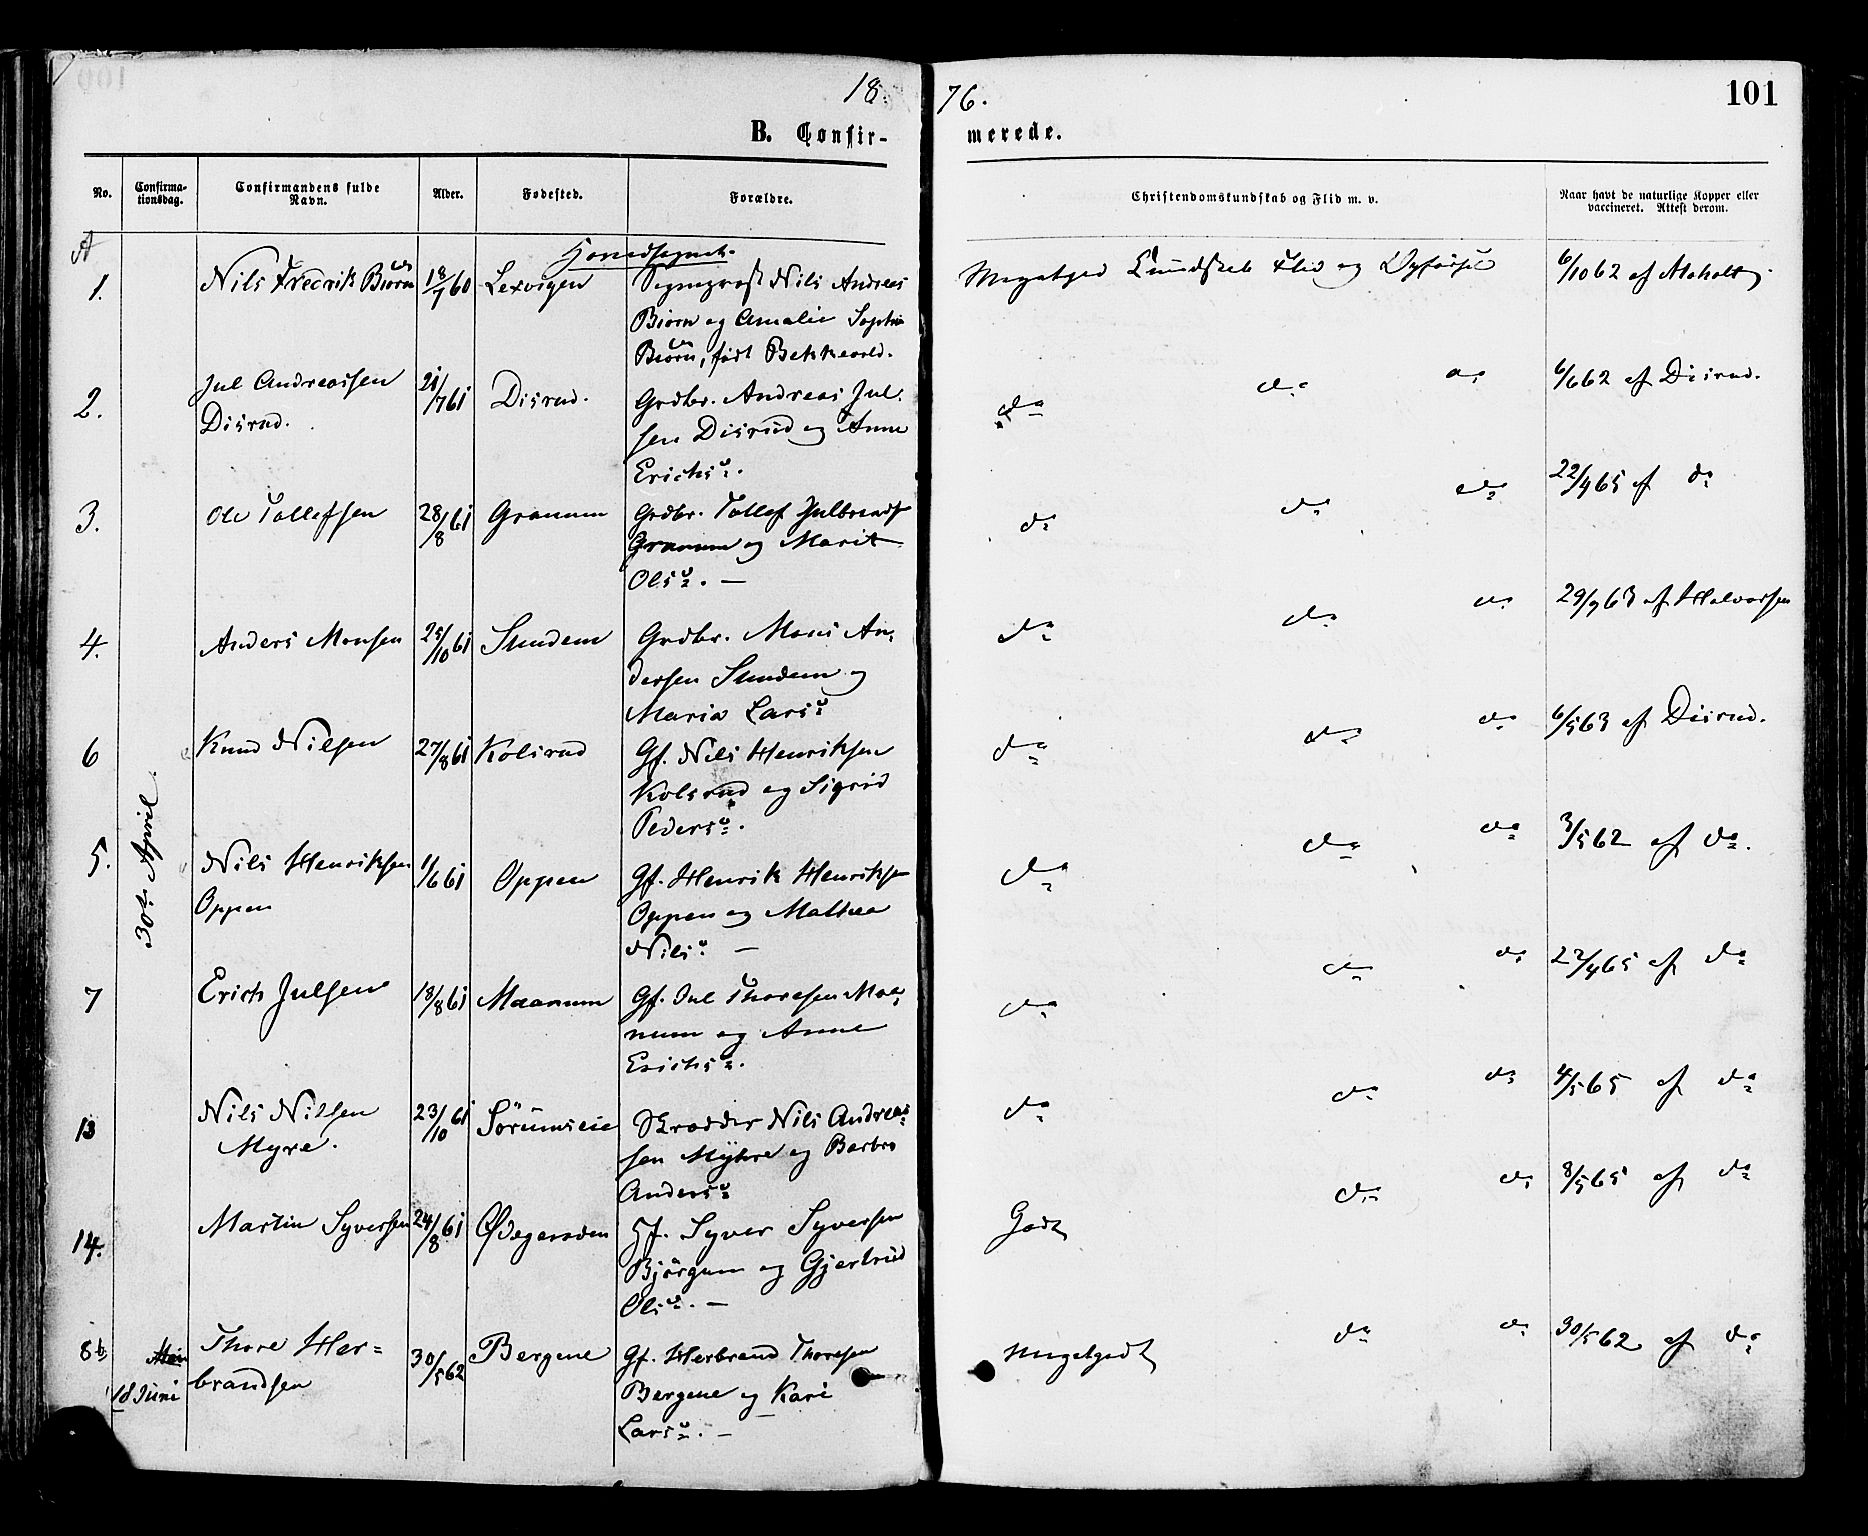 18
76.
101
B. Confir-
merede.
No.
Confirma-
tionsdag.
Confirmandens fulde
Navn.
Alder.
Fødested.
Forældre.
Christendomskundskab og Flid m. v.
Naar havt de naturlige Kopper eller
vaccineret. Attest derom.
A
Hovedsognet.
1.
Nils Fredrik Biørn
18/7 60
Lexvigen
Sogneprest Nils Andreas
Biørn og Amalie Sophie
Biørn, født Bekkevold.
Megetgod Kundskab Flid og Opførsel
6/10 62 af Aaholt
2.
Jul Andreassen
Disrud.
21/7 61
Disrud.
Grdbr. Andreas Jul-
sen Disrud og Anne
Erichsd.
do do do
6/6 62 af Disrud.
3.
Ole Tollefsen
28/8 61
Granum
Grdbr. Tollef Julbrands
Granum og Marit
Olsd. —
do do do
22/4 65 af do
4.
Anders Monsen
25/10 61
Sundem
Grdbr. Mons An-
dersen Sundem og
Maria Larsd
do do do
29/9 63 af Halvorsen
6
Knud Nilsen
27/8 61
Kolsrud
Gf. Nils Henriksen
Kolsrud og Sigrid
Pedersd.
do do do
6/5 63 af Disrud.
30te April
5.
Nils Henriksen
Oppen
1/6 61
Oppen
Gf. Henrik Henriks
Oppen og Mathea
Nilsd —
do do do
3/5 62 af do.
7
Erich Julsen
18/8 61
Maanum
Gf. Jul Thoresen Maa-
num og Anne
Erichsd.
do do do
22/4 65 af do
13
Nils Nilsen
Myre.
23/10 61
Sørumseie
Skrædder Nils Andrea-
sen Myhre og Barbro
Andersd
do do do
4/5 65 af do
14.
Martin Syversen
24/8 61
Ødegaarden
Hf. Syver Syversen
Bjørgum og Gjertrud
Olsd. —
Godt do do
8/5 65 af do
8b
18 Juni
Thore Her-
brandsen
30/5 62
Bergene
Gf. Herbrand Thoresen
Bergene og Kari
Larsd. —
Megetgodt do do
30/5 62 af do